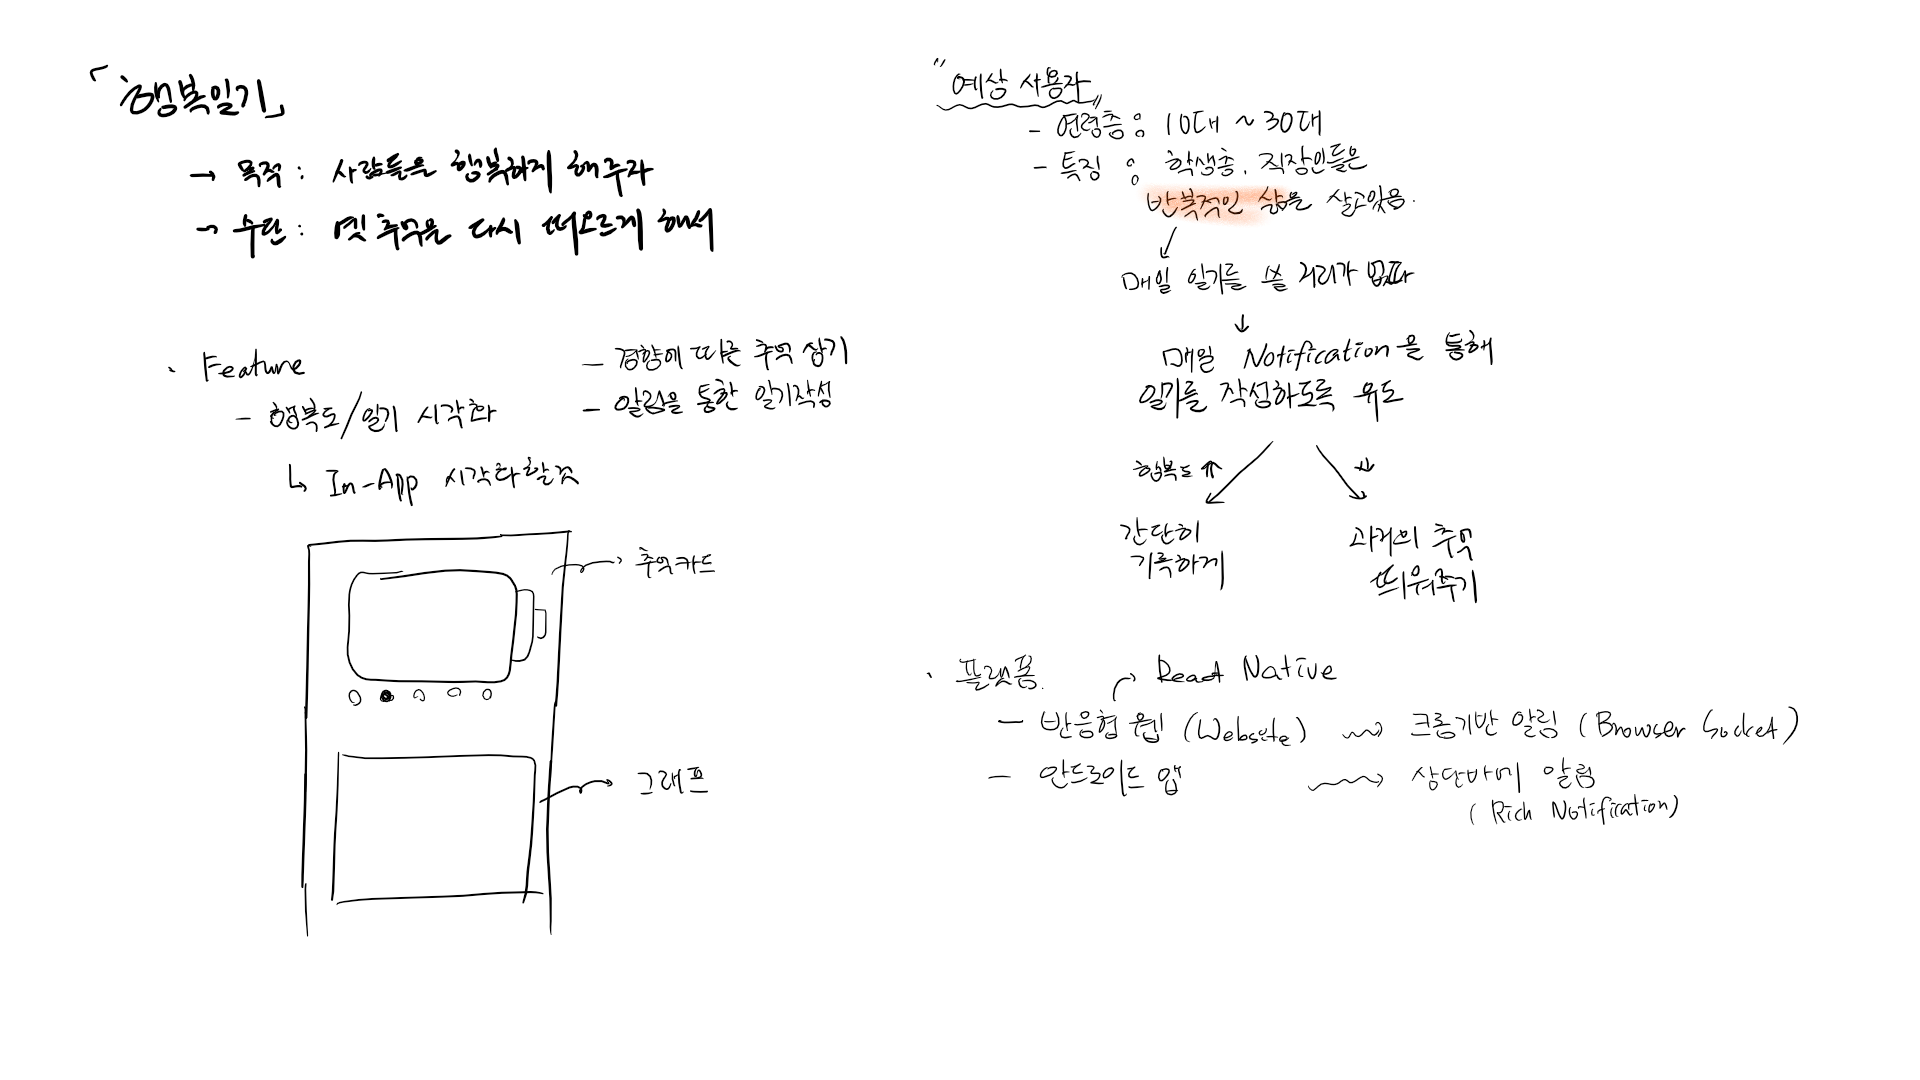 「행복일기」
→ 목적 : 사람들을 행복하지 해주자
→ 수단 : 옛 추억을 다시 떠오르게 해서
· Feature
- 행복도/일기 시각화
↳ In-App 시각화할것
- 경향에 따른 추억 상기
- 알림을 통한 일기작성
추억카드
그래프
"예상 사용자"
- 연령층 : 10대 ~ 30대
- 특징 : 학생층, 직장인들은
반복적인 삶을 살고있음.
매일 일기를 쓸 거리가 없다
↓
매일 Notification을 통해
일기를 작성하도록 유도
행복도 ⇑ ⇓
간단히
기록하게
과거의 추억
띄워주기
· 플랫폼.
→ React Native
- 반응형 웹 (Website) ~> 크롬기반 알림 (Browser Socket)
- 안드로이드 앱 ~> 상단바에 알림
(Rich Notification)